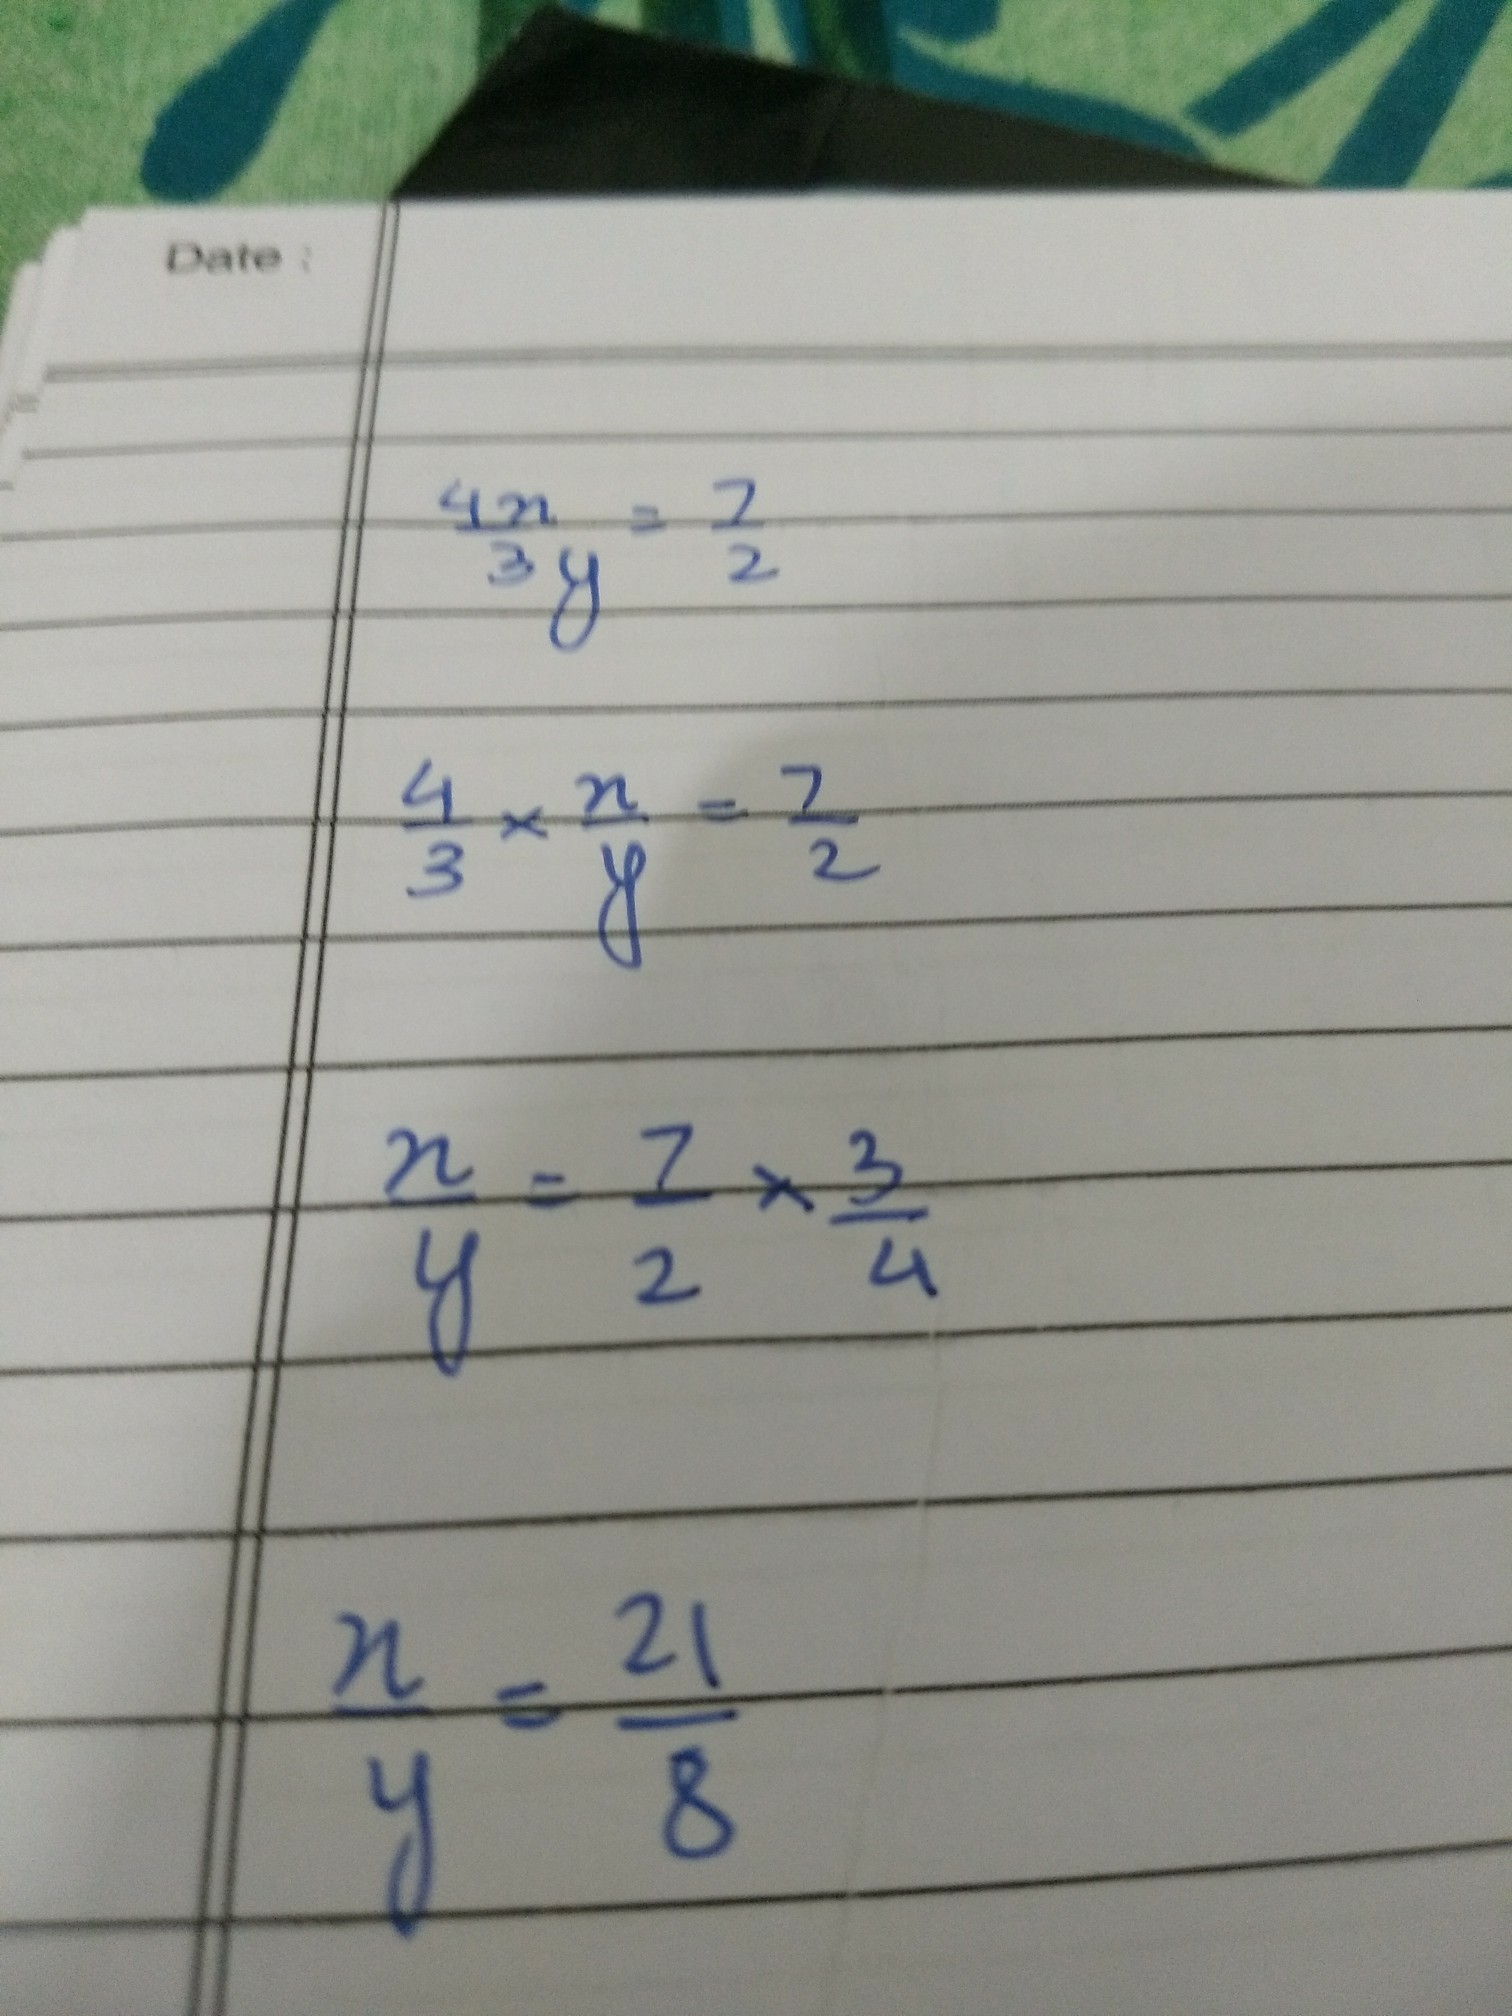 Date :
4x/3y = 7/2
4/3 × x/y = 7/2
x/y = 7/2 × 3/4
x/y = 21/8